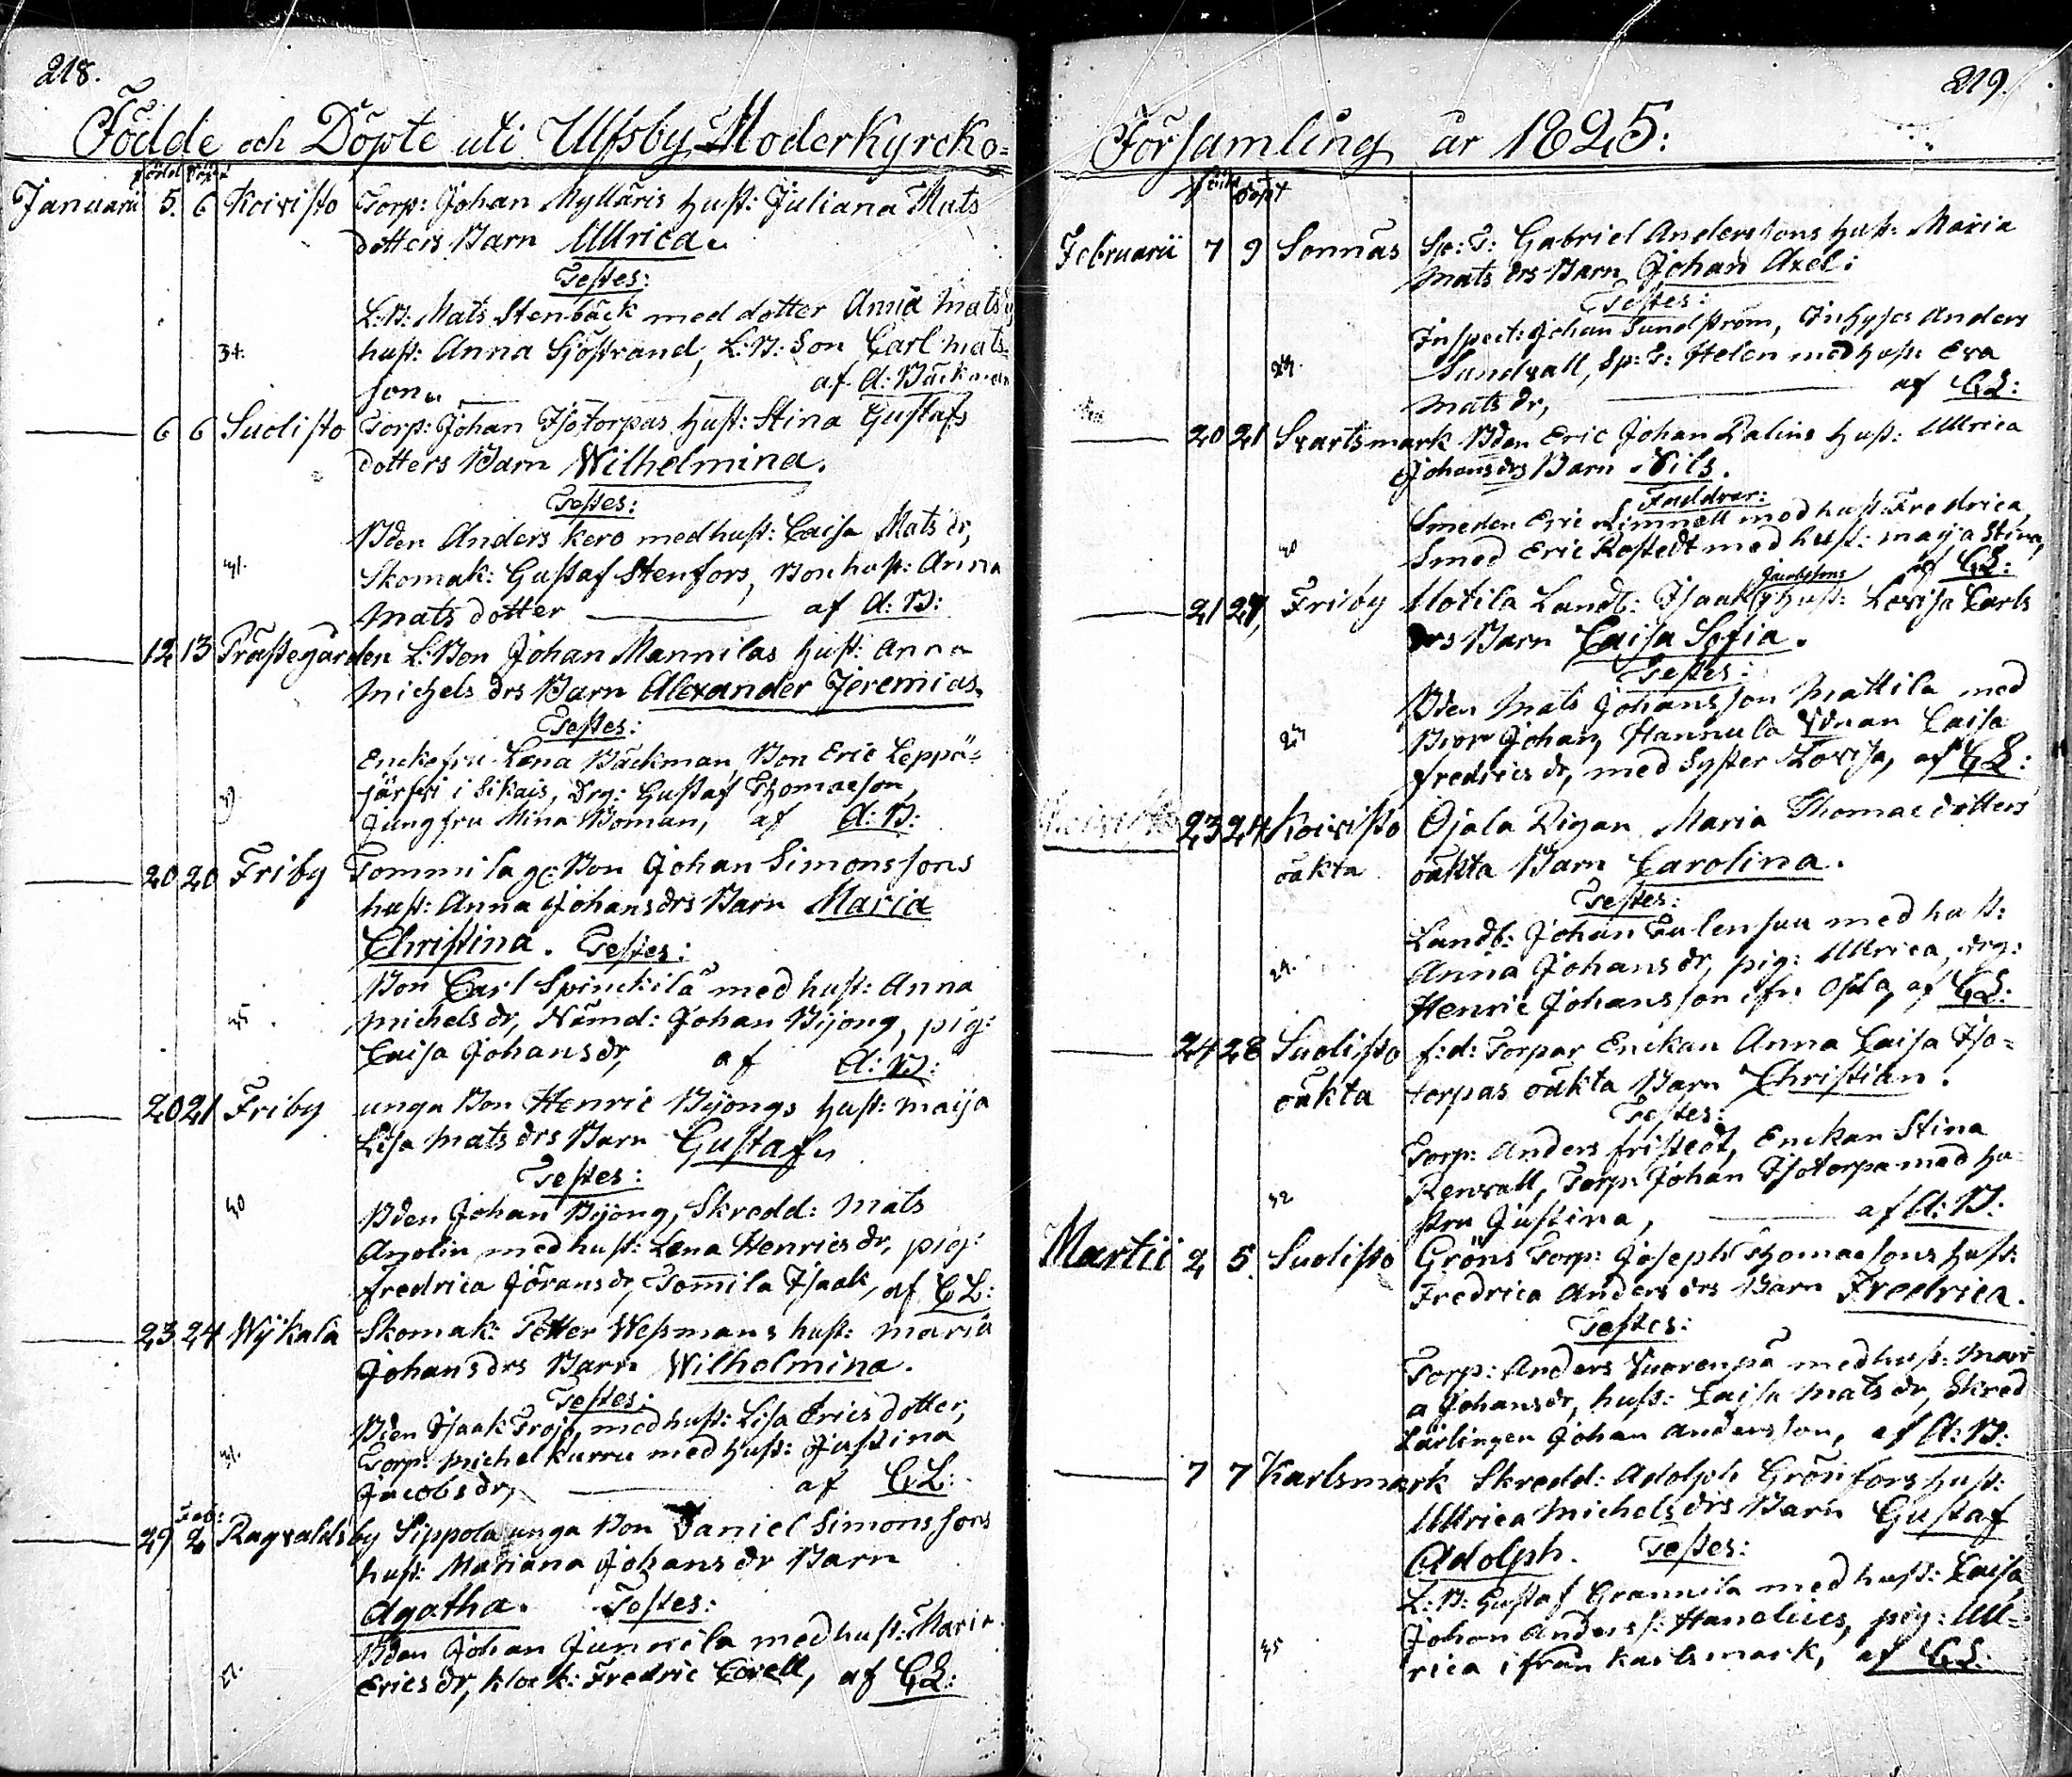 218.
Födde och Döpte uti Ulfsby Moderkyrcko=
född döpt
Januarii 5. 6 Koivisto Torp: Johan Mylläris hust: Juliana Mats
dotters Barn Ullrica.
Testes:
L:B: Mats Stenbäck med dotter Anna Mats
34. hust: Anna Sjöstrand, L:B: Son Carl Mats=
son. af A: Bäckman
6 6 Suolisto Torp: Johan Isotorpas hust: Stina Gustafs
dotters Barn Wilhelmina.
Testes:
Bden Anders Kero med hust: Caisa Mats dr,
31. Skomak: Gustaf Stenfors, Bon hust: Anna
Mats dotter af A: B:
12 13 Prästegården L:Bon Johan Mannilas hust: Anna
Michels drs Barn Alexander Jeremias.
Testes:
Enckefru Lena Bäckman, Bon Eric Leppä=
järfvi i Sikais, Drg: Gustaf Thomasson,
Jungfru Mina Boman, af A: B:
20 20 Friby Tommila ge Bon Johan Simonssons
hust: Anna Johansdrs Barn Maria
Christina. Testes:
Bon Carl Spinckilä med hust: Anna
35. Michels dr, Nämd: Johan Bijong, pig:
Caisa Johansdr, af A: B:
20 21 Friby unga Bon Henric Bijongs hust: Maija
Lisa Mats drs Barn Gustaf.
Testes:
40 Bden Johan Bijong, Skredd: Mats
Anolin med hust: Lena Henrics dr, pig:
Fredrica Jöransdr, Tomila Isaak, af CL:
23 24 Wijkala Skomak: Petter Wessmans hust: Maria
Johansdrs Barn Wilhelmina.
Testes:
Bden Isaak Trojo, med hust: Lisa Erics dotter,
31. Torp: Michel Kurru med hust: Justina
Jacobsdr, af CL:
Feb:
29 2 Ragvaldsby Sippola unga Bon Daniel Simonssons
hust: Mariana Johans dr Barn
Agatha. Testes:
Bden Johan Junnila med hust: Maria
27. Erics dr, Klock: Fredric Corell, af CL:
219.
Församling år 1825:
född döpt
Februarii 7 9 Sonnäs Sp: T: Gabriel Anderssons hust: Maria
Mats drs Barn Johan Axel:
Testes:
Inspect: Johan Sundström, Inhyses Anders
Sundvall, Sp: T: Helen med hust: Eva
Mats dr, af CL:
20 21 Svartsmark Bden Eric Johan Palins hust: Ullrica
Johansdrs Barn Nils.
Faddrar:
Smeden Eric Limnell med hust: Fredrica,
40 Smed Eric Rostedt med hust: Maija Stina,
af CL:
Jacobssons
21 27, Friby Motila Landb: Isaak hust: Lovisa Carls
drs Barn Caisa Sofia.
Testes:
Bden Mats Johansson Mattila med
27 Bror Johan, Hannula Bdnan Caisa
Fredrics dr, med Syster Lovisa, af CL:
23 24 Koivisto Ojala Pigan Maria Thomae dotters
oäkta oäkta Barn Carolina.
Testes:
Landb: Johan Tulensuu med hust:
24. Anna Johansdr, pig: Ullrica, drg:
Henric Johansson ifr: Ojala, af CL:
24 28 Suolisto f:d: Torpar Enckan Anna Caisa Iso=
oäkta torpas oäkta Barn Christian.
Testes:
Torp: Anders Fristedt, Enckan Stina
32 Renvall, Torp: Johan Isotorpa med hu=
stru Justina, af A: B:
Martii 2 5 Suolisto Gröns Torp: Joseph Thomassons hust:
Fredrica Anders drs Barn Fredrica.
Testes:
Torp: Anders Vuorenpä med hust: Mari
a Johansdr, hust: Caisa Mats dr, Skred
Lärlingen Johan Andersson, af A: B:
7 7 Karlsmark Skredd: Adolph Grönfors hust:
Ullrica Michelsdrs Barn Gustaf
Adolph. Testes:
L: B: Gustaf Grannila med hust: Caisa
35 Johan Anders s: Hanelius, pig: Ull=
rica ifrån Karlsmark, af CL: